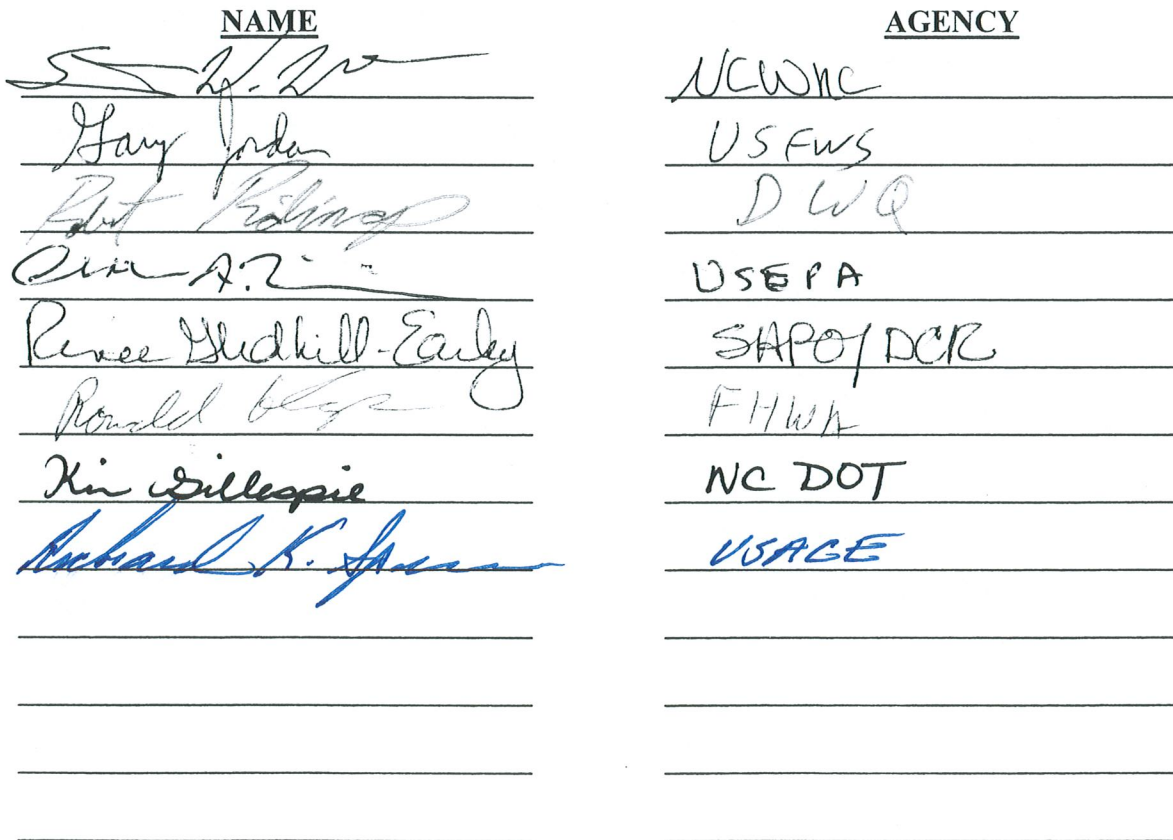 NAME AGENCY
NCWRC
Gary Jordan USFWS
DWQ
USEPA
Renee Gledhill-Earley SHPO/DCR
Ronald FHWA
Kim Gillespie NC DOT
Richard K. USACE